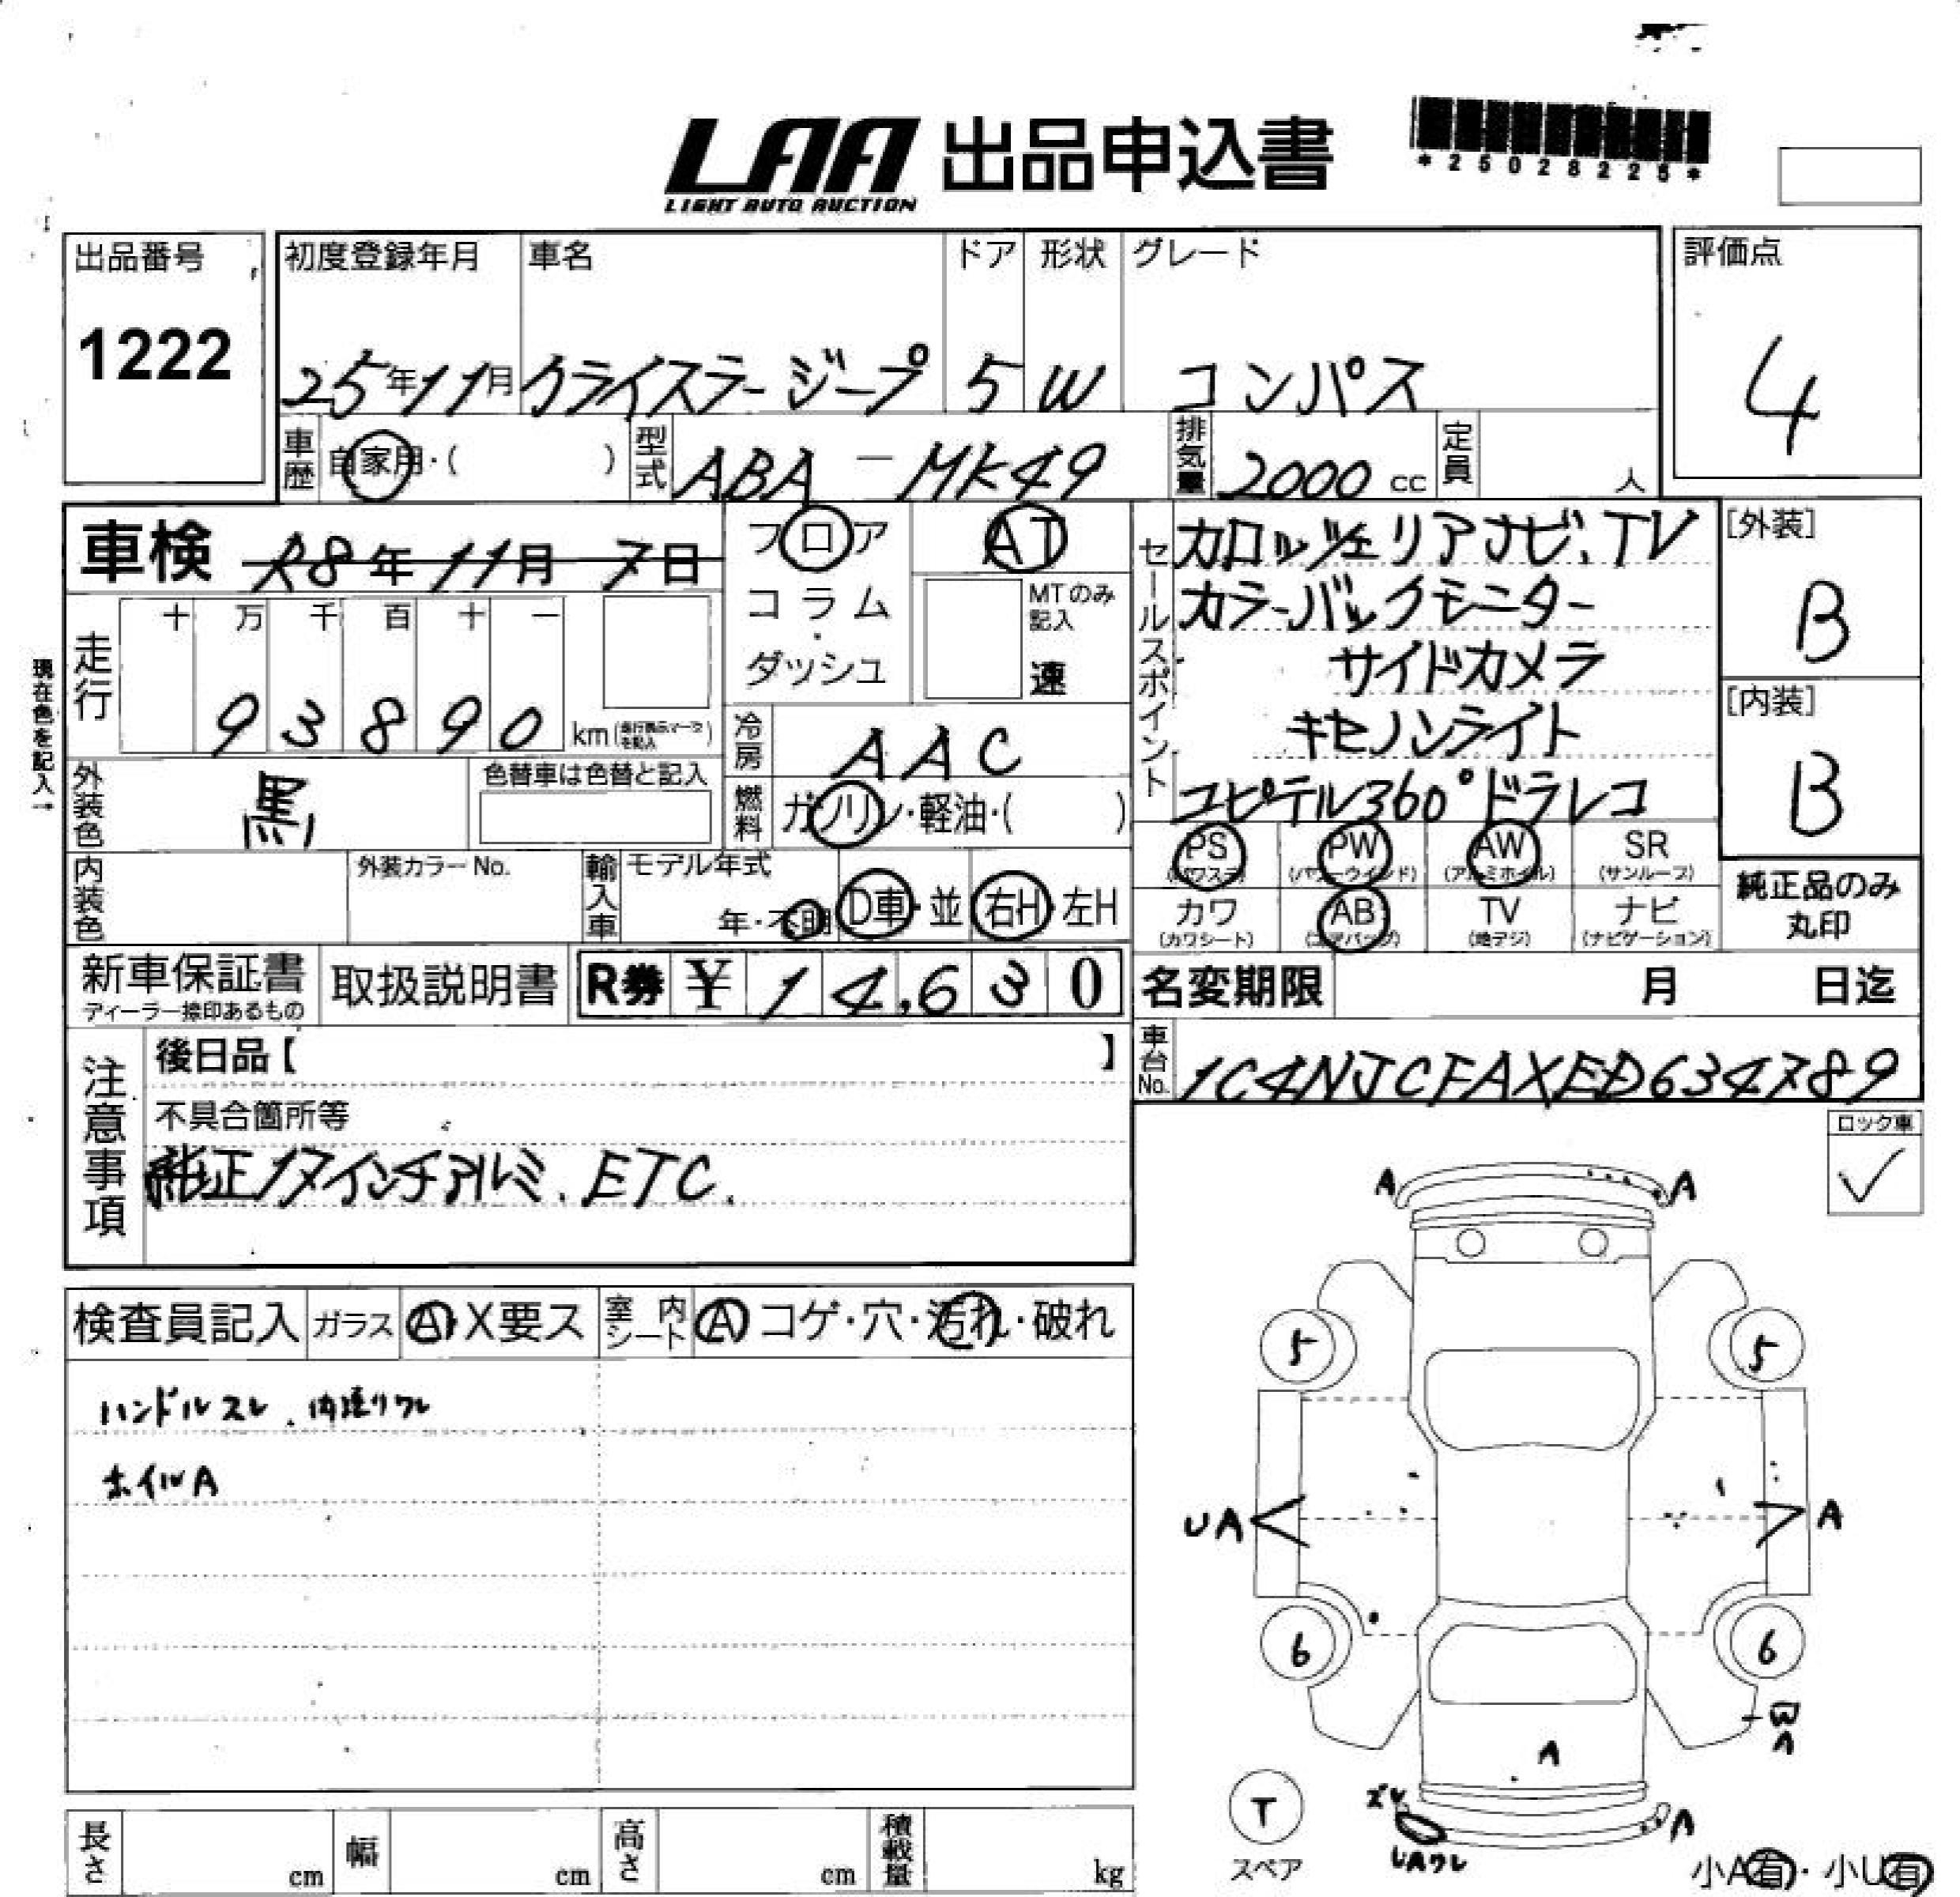 LAA 出品申込書
LIGHT AUTO AUCTION
*25028225*
出品番号
1222
初度登録年月 車名 ドア 形状 グレード
25年11月 クライスラージープ 5 W コンパス
評価点
4
車歴 自家用・( ) 型式 ABA-MK49 排気量 2000 cc 定員 人
車検 R8年11月7日
フロア
コラム
・
ダッシュ
AT
MTのみ
記入
速
セールスポイント
カロッツェリアナビ、TV
カラーバックモニター
サイドカメラ
キセノンライト
コピテル360°ドラレコ
[外装]
B
[内装]
B
現在色を記入→
走行 十 万 千 百 十 一
93890 km
冷房 AAC
外装色 黒 色替車は色替と記入
燃料 ガソリン・軽油・( )
PS PW AW SR
(パワステ) (パワーウインド) (アルミホイル) (サンルーフ)
カワ AB TV ナビ
(カワシート) (エアバッグ) (地デジ) (ナビゲーション)
純正品のみ
丸印
内装色 外装カラーNo. 輸入車 モデル年式
年・不明 D車・並 右H・左H
新車保証書 取扱説明書 R券 ¥14,630
ディーラー捺印あるもの
名変期限 月 日迄
車台No. 1C4NJCFAXED634789
注意事項
後日品【 】
不具合箇所等
純正17インチアルミ、ETC.
ロック車
✓
検査員記入 ガラス A・X要ス 室内シート A コゲ・穴・汚れ・破れ
ハンドルスレ、内張リワレ
ホイルA
A A
5 5
UA A
6 6
A
T
スペア
ズレ
UAワレ
A
小A有・小U有
長さ cm 幅 cm 高さ cm 積載量 kg